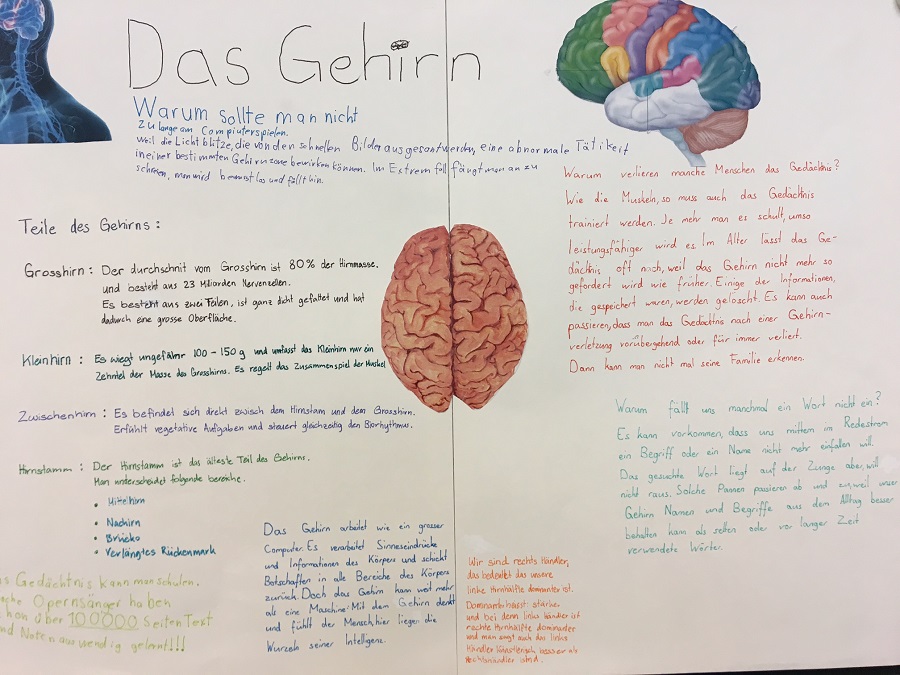 Das Gehirn
Warum sollte man nicht
zu lange am Computerspielen.
weil die Lichtblitze, die von den schnellen Bilder ausgesant werden, eine abnormale Tätikeit
in einer bestimmten Gehirn zone bewirken können. Im Extrem fall fängt man an zu
schreien, man wird bewusstlos und fällt hin.
Warum verlieren manche Menschen das Gedächtnis?
Wie die Muskeln, so muss auch das Gedächtnis
trainiert werden. Je mehr man es schult, umso
leistungsfähiger wird es. Im Alter lässt das Ge-
dächtnis oft nach, weil das Gehirn nicht mehr so
gefordert wird wie früher. Einige der Informationen,
die gespeichert waren, werden gelöscht. Es kann auch
passieren, dass man das Gedächtnis nach einer Gehirn-
verletzung vorübergehend oder für immer verliert.
Dann kann man nicht mal seine Familie erkennen.
Teile des Gehirns:
Grosshirn: Der durchschnit vom Grosshirn ist 80% der Hirnmasse.
und besteht aus 23 Miliarden Nervenzellen.
Es besteht aus zwei Teilen, ist ganz dicht gefaltet und hat
dadurch eine grosse Oberfläche.
Kleinhirn: Es wiegt ungefähr 100-150g und umfasst das Kleinhirn nur ein
Zehntel der Masse des Grosshirns. Es regelt das Zusammenspiel der Muskel
Zwischenhirn: Es befindet sich direkt zwisch dem Hirnstam und dem Grosshirn.
Erfühlt vegetative Aufgaben und steuert gleichzeitig den Biorhythmus.
Hirnstamm: Der Hirnstamm ist das älteste Teil des Gehirns.
Man unterscheidet folgende bereiche.
• Mittelhirn
• Nachirn
• Brücke
• Verlängtes Rückenmark
Warum fällt uns manchmal ein Wort nicht ein?
Es kann vorkommen, dass uns mitten im Redestrom
ein Begriff oder ein Name nicht mehr einfallen will.
Das gesuchte Wort liegt auf der Zunge aber, will
nicht raus. Solche Pannen passieren ab und zu, weil unser
Gehirn Namen und Begriffe aus dem Alltag besser
behalten kann als selten oder vor langer Zeit
verwendete Wörter.
Gedächtnis kann man schulen.
Opernsänger haben
über 100000 Seiten Text
Noten auswendig gelernt!!!
Das Gehirn arbeitet wie ein grosser
Computer. Es verarbeitet Sinneseindrücke
und Informationen des Körpers und schickt
Botschaften in alle Bereiche des Körpers
zurück. Doch das Gehirn kann weit mehr
als eine Maschine: Mit dem Gehirn denkt
und fühlt der Mensch, hier liegen die
Wurzeln seiner Intelligenz.
Wir sind rechts Händler,
das bedeutet das unsere
linke Hirnhälfte dominanter ist.
stärke.
und bei denn links händler ist
rechte Hirnhälfte dominanter
und man sagt auch das links
Händler künstlerisch besser als
rechtshändler sind.